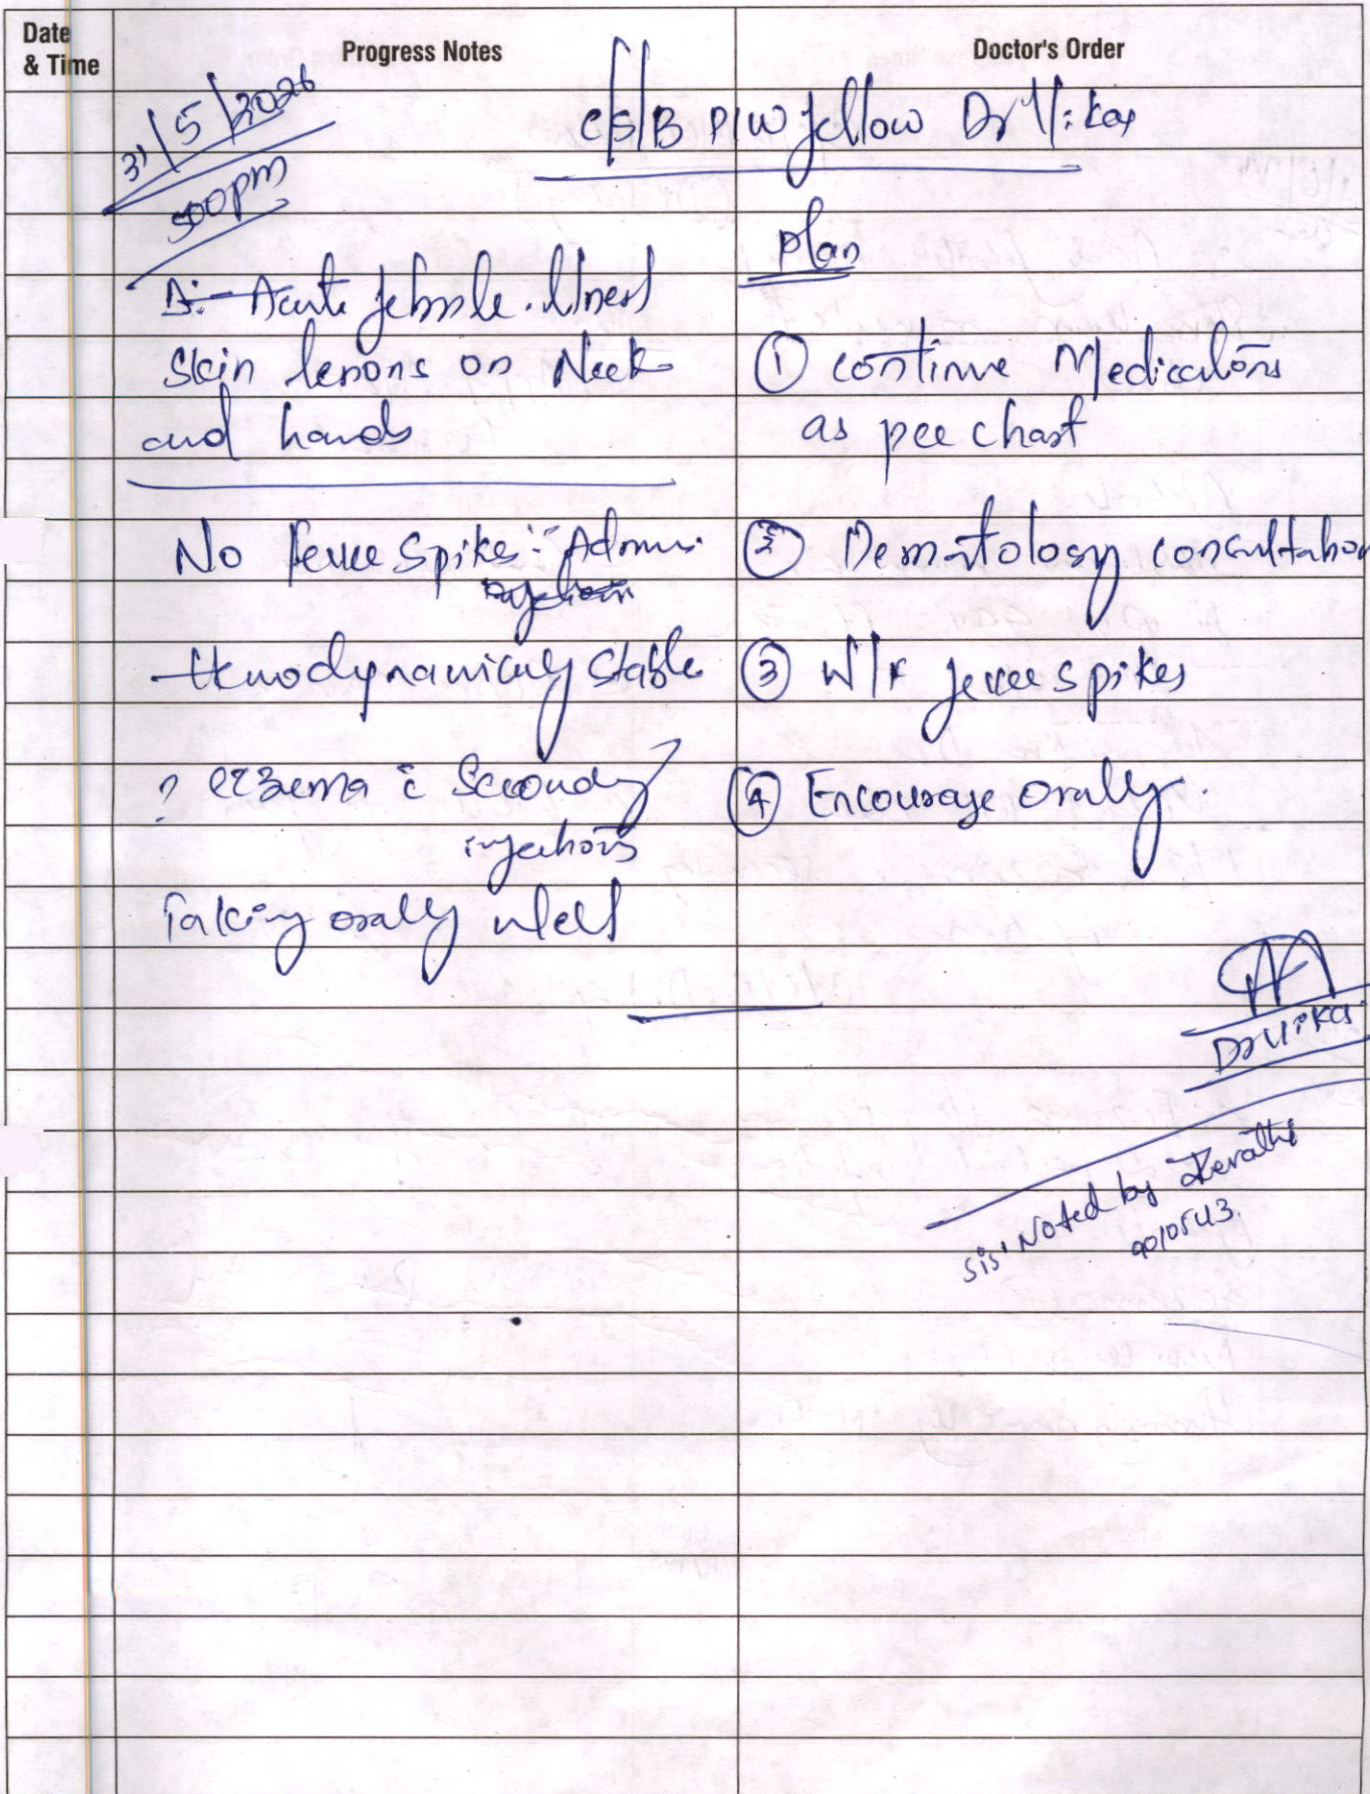 Date & Time
Progress Notes
Doctor's Order
31/5/2026
500pm
C/S/B PIW fellow Dr Vikas
Δ:- Acute febrile illness
Skin lesions on Neck
and hands
No Fever Spikes :- Admi.
Hemodynamically stable
? eczema c̄ Secondary
infections
Taking orally well
Plan
① continue Medications
as per chart
② Dermatology consultation
③ W/F fever spikes
④ Encourage orally.
Dr Vikas
sis' Noted by